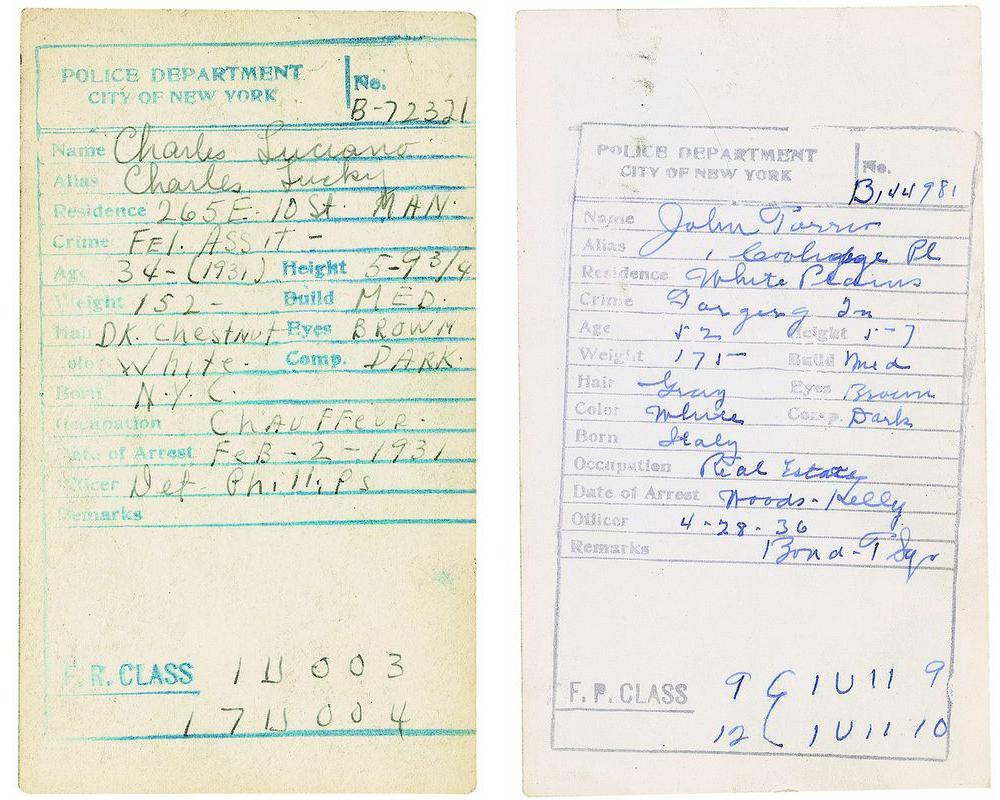 POLICE DEPARTMENT
CITY OF NEW YORK
No.
B-72321
Name Charles Luciano
Alias Charles Lucky
Residence 265 E. 10 St. MAN.
Crime FEl. ASSIt -
Age 34-(1931) Height 5-9 3/4
Weight 152- Build MED.
Hair DK. Chestnut Eyes BROWN
olor White. Comp. DARK.
Born N.Y.C.
Occupation CHAUFFEUR.
Date of Arrest FeB-2-1931
Officer Det- Phillips
Remarks
F. R. CLASS 1 U 0 0 3
1 7 U 0 0 4
POLICE DEPARTMENT
CITY OF NEW YORK
No.
B144981
Name John Torrio
Alias 1 Pl
Residence White Plains
Crime
Age 52 Height 5-7
Weight 175 Build Med
Hair Gray Eyes Brown
Color White Comp. Dark
Born Italy
Occupation Real Estate
Date of Arrest Woods-Kelly
Officer 4-28-36
Remarks Bond-T Sqr
F. P. CLASS 9 1 U 11 9
12 1 U 11 10